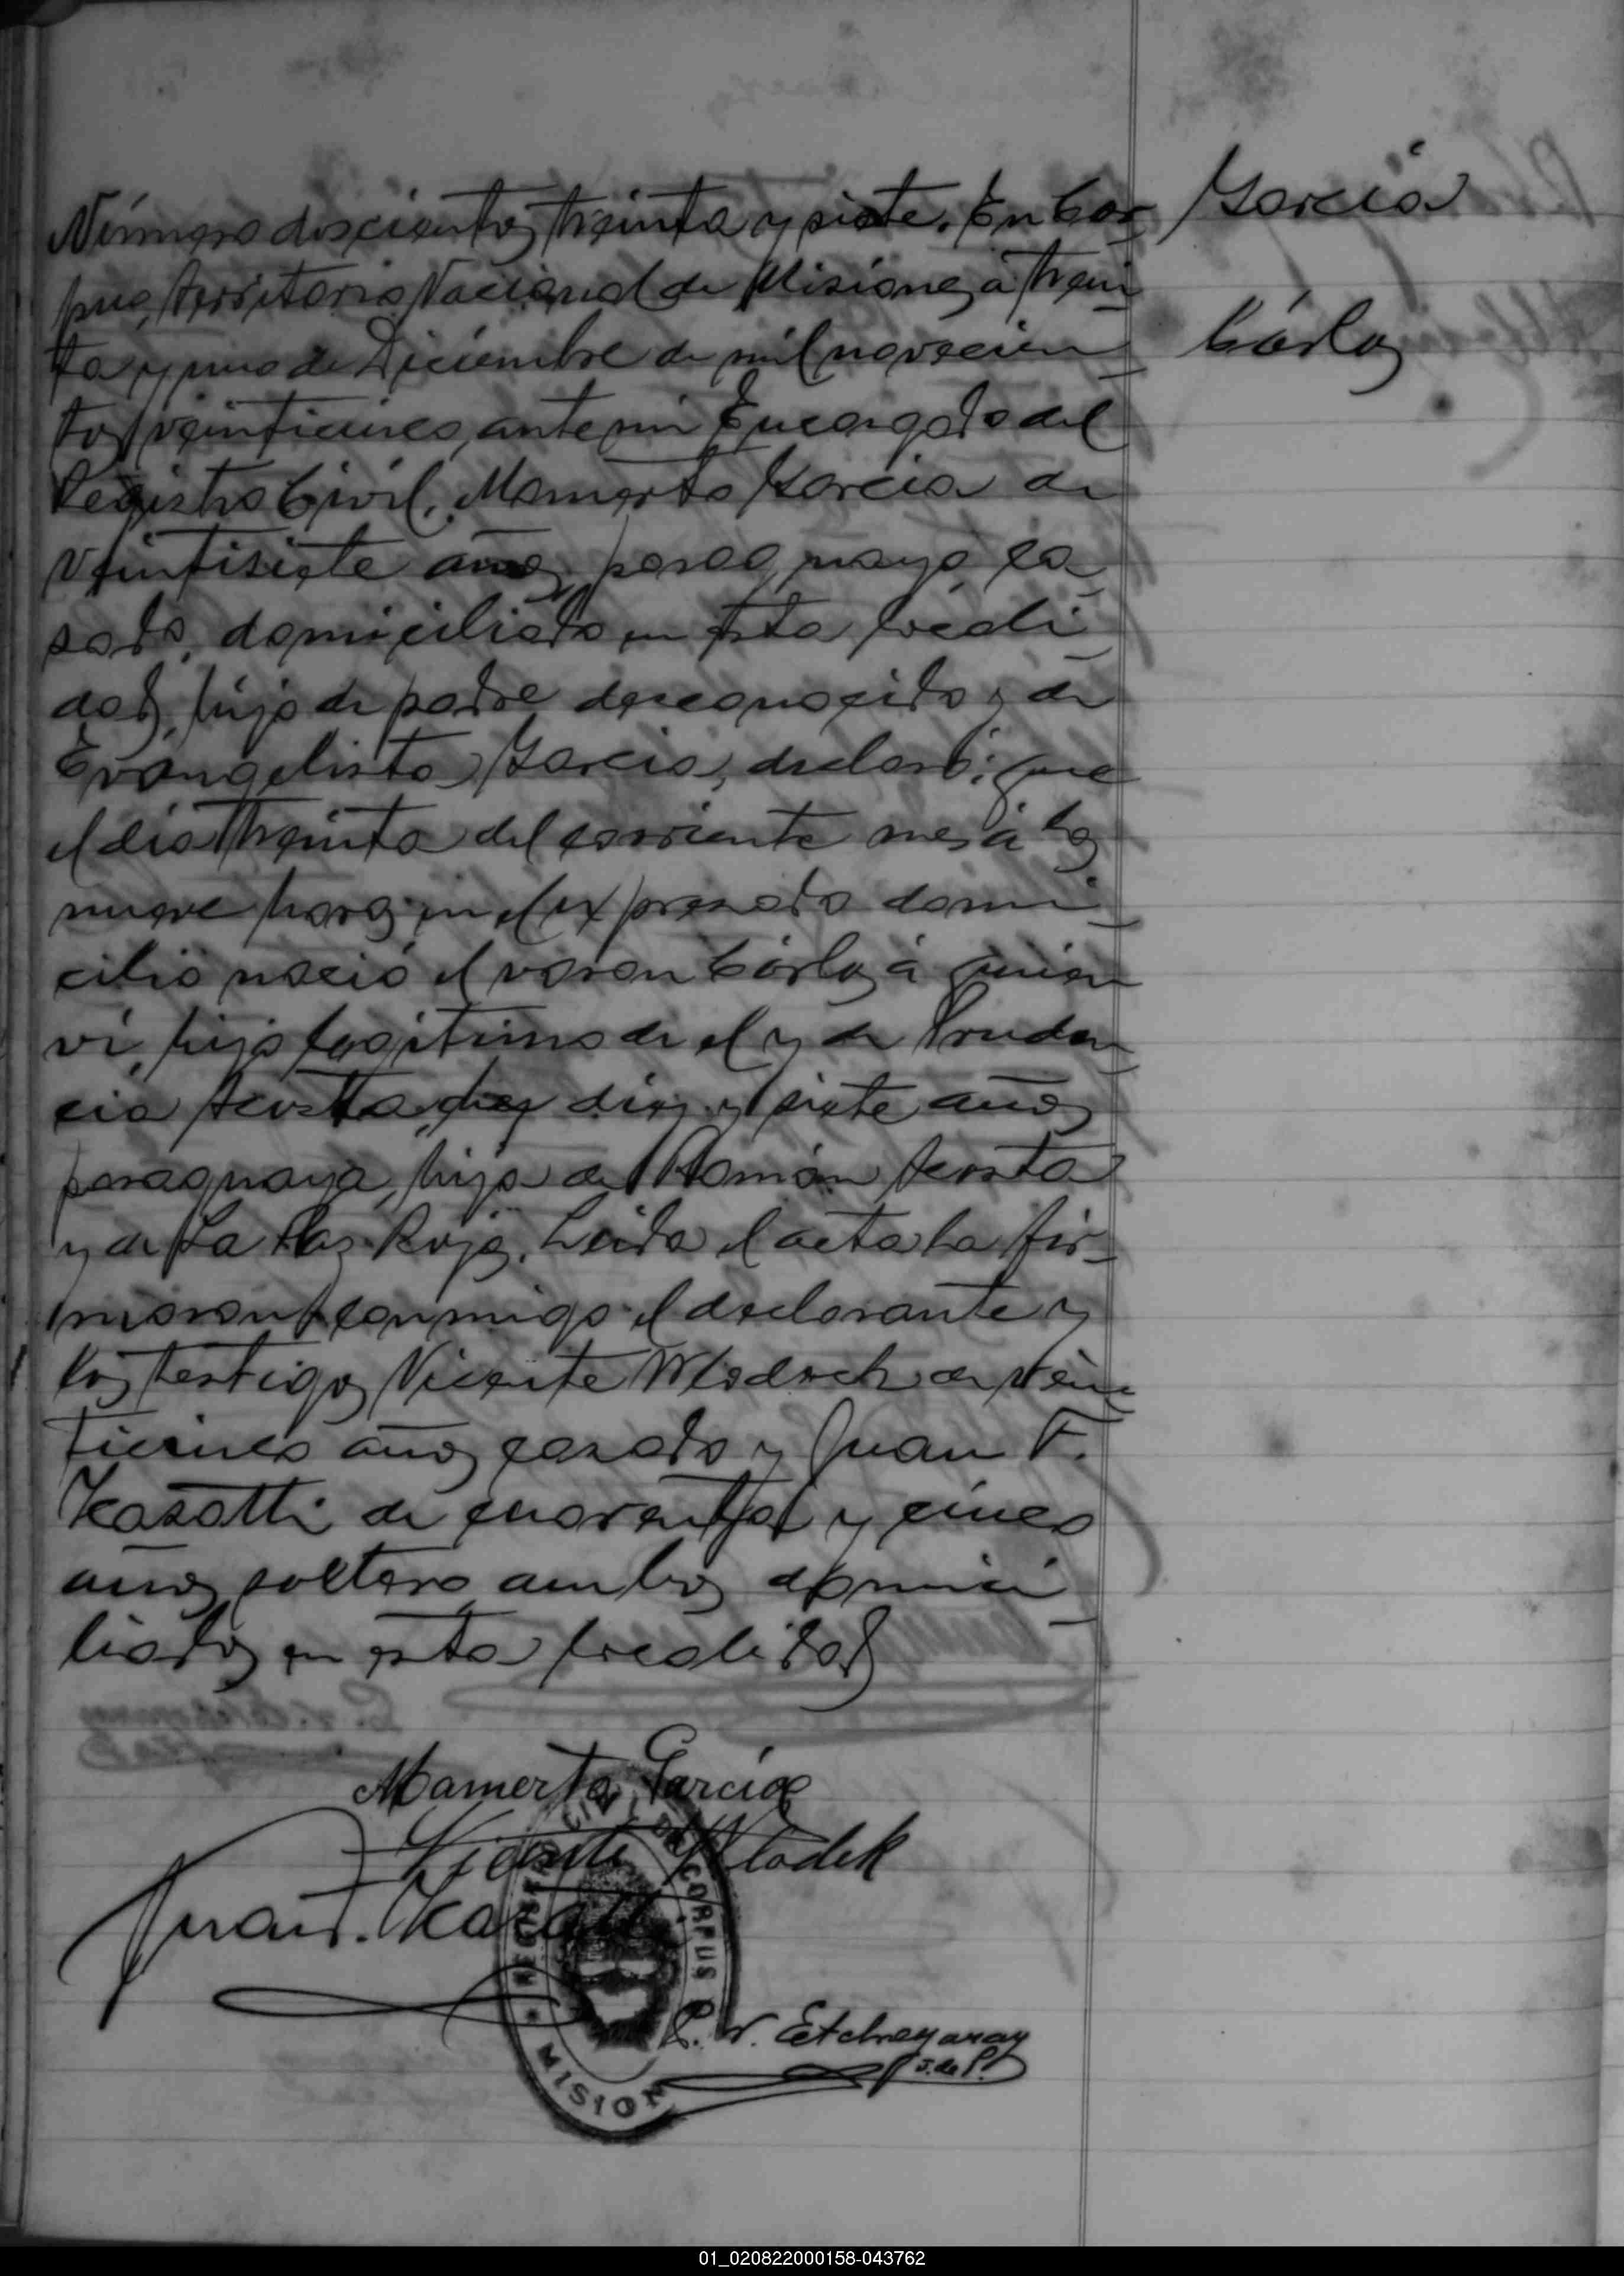 Número doscientos treinta y siete. En Cor-
pus, Territorio Nacional de Misiones, á trein-
ta y uno de Diciembre de mil novecien-
tos veinticinco, ante mi Encargado del
Registro Civil, Mamerto Garcia de
veintisiete años, paraguayo, ca-
sado, domiciliado en esta locali-
dad, hijo de padre desconocido y de
Evangelista Garcia, declaró: que
el dia treinta del corriente mes á las
nueve horas en el expresado domi-
cilio nació el varon Cárlos á quien
vi, hijo legitimo de el y de Pruden-
cia Acosta, diez y siete años
paraguaya, hija de Román Acosta
y de La Paz Rojas. Leida el acta la fir-
maron conmigo el declarante y
los testigos Vicente Wlodoch de vein-
ticinco años casado y Juan F.
Kasatti de cuarenta y cinco
años soltero ambos domici-
liados en esta localidad
Garcia
Cárlos
Mamerto Garcia
Vicente Wlodek
Juan F. Kasatti
P. V. Etchegaray
J. de P.
REGISTRO CIVIL DE CORPUS
MISION
01_020822000158-043762